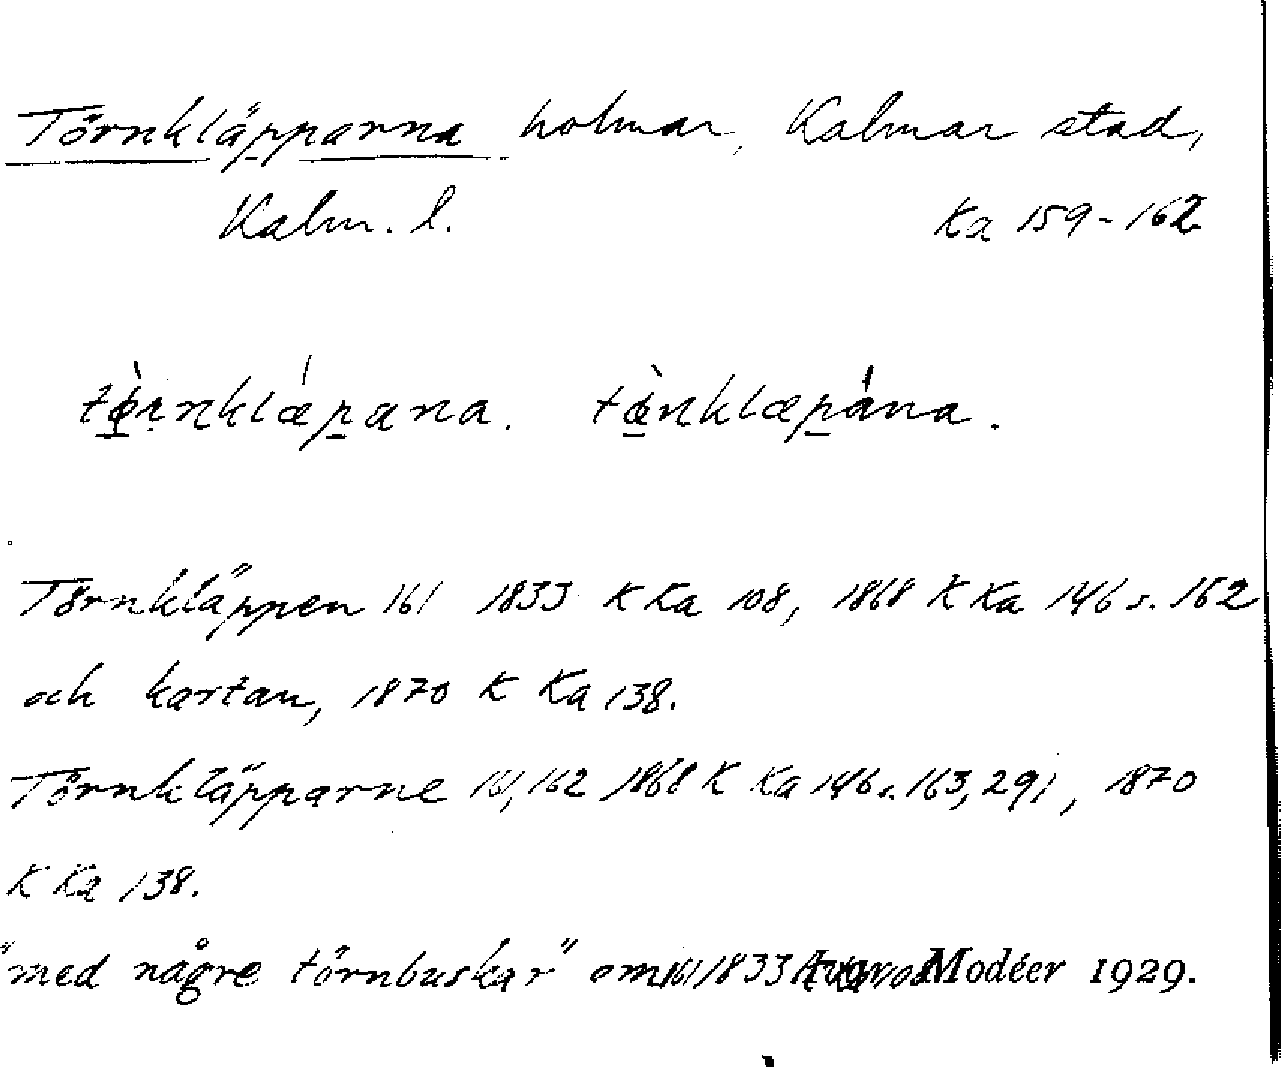 Törnkläpparna holmar, Kalmar stad,
Kalm. l. Ka 159-162
tø̀rnklǽpana. tœ̀nklæpána.
Törnkläppen 161 1833 K Ka 108, 1868 K Ka 146 s. 162
och kartan, 1870 K Ka 138.
Törnkläpparne 161, 162 1868 K Ka 146 s. 163, 291, 1870
K Ka 138.
"med någre törnbuskar" om 161 1833 Modéer 1929.